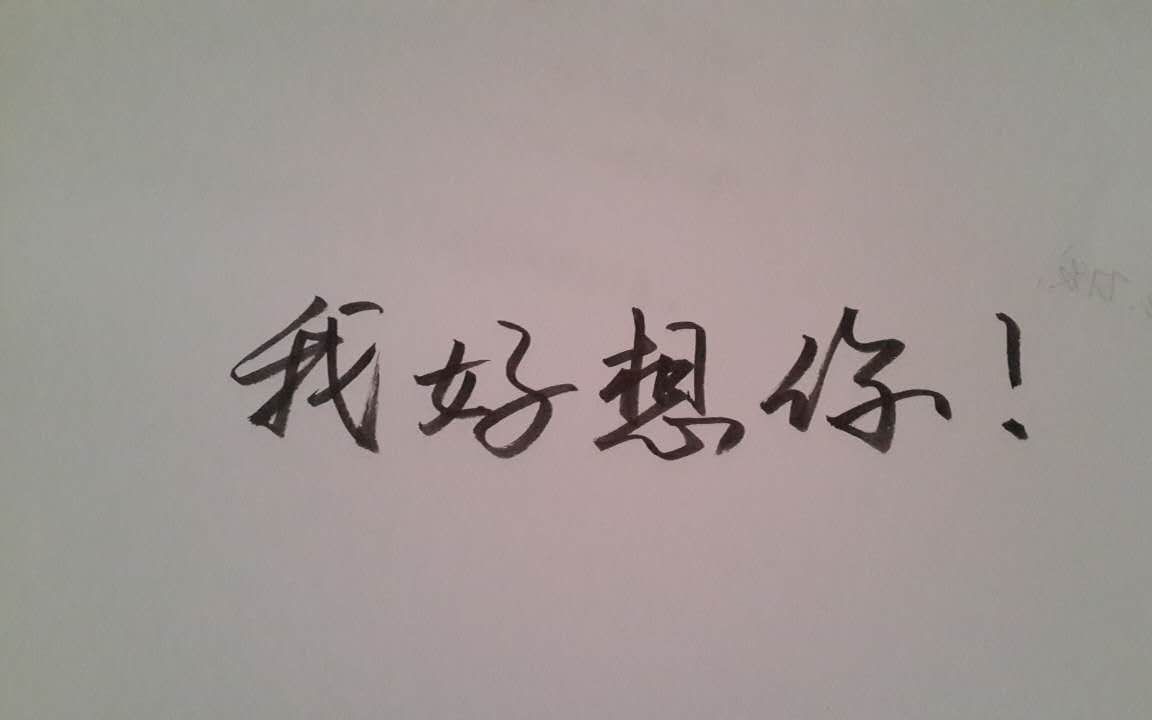 我好想你！